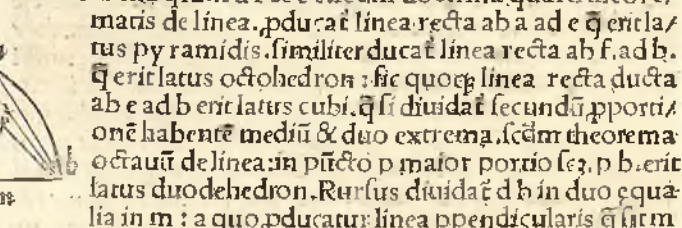 matis de linea.ꝓducat̃ linea recta ab a ad e q̃ erit la/
tus pyramidis.similiter ducat̃ linea recta ab f.ad h.
q̃ erit latus octohedron : sic quoqꝫ linea recta ducta
ab e ad b erit latus cubi.q̃ si diuidat̃ secundũ ꝓporti/
onẽ habentẽ mediũ & duo extrema.scd̃m theorema
octauũ de linea:in pũcto p maior portio sꝫ. p b.erit
latus duodehedron.Rursus diuidat̃ d b in duo equa-
lia in m : a quo ꝓducatur linea ꝑpendicularis q̃ sit m
b